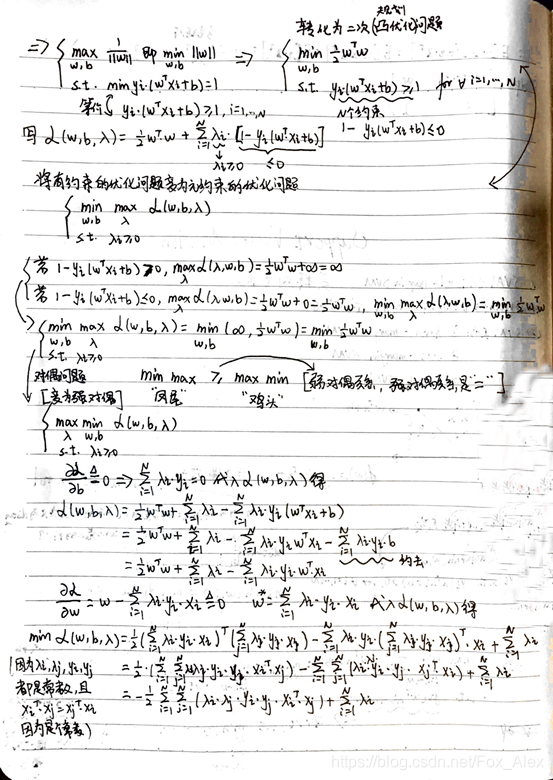 规划
转化为二次(凸优化)问题
=> { max w,b 1/||w|| 即 min w,b ||w|| => { min w,b ½wᵀw
s.t. min yi·(wᵀxi+b)=1 s.t. yi(wᵀxi+b)≥1 for ∀ i=1,…,N
等价 yi·(wᵀxi+b)≥1, i=1,…,N N个约束
1-yi(wᵀxi+b)≤0
L(w,b,λ)=½wᵀw+∑_{i=1}^{N} λi·[1-yi(wᵀxi+b)]
λi≥0 ≤0
将有约束的优化问题变为无约束的优化问题
{ min w,b max λ L(w,b,λ)
s.t. λi≥0
{ 若 1-yi(wᵀxi+b)≥0, max λ L(λ,w,b)=½wᵀw+∞=∞
若 1-yi(wᵀxi+b)≤0, max λ L(λ,w,b)=½wᵀw+0=½wᵀw, min w,b max λ L(λ,w,b)=min w,b ½wᵀw
{ min w,b max λ L(w,b,λ)=min w,b (∞,½wᵀw)=min w,b ½wᵀw
s.t. λi≥0
对偶问题 min max ≥ max min [弱对偶关系, 强对偶关系是"="]
[变为强对偶] "凤尾" "鸡头"
{ max λ min w,b L(w,b,λ)
s.t. λi≥0
∂L/∂b ≜ 0 => ∑_{i=1}^{N} λi·yi=0 代入L(w,b,λ)得
L(w,b,λ)=½wᵀw+∑_{i=1}^{N} λi-∑_{i=1}^{N} λi·yi(wᵀxi+b)
=½wᵀw+∑_{i=1}^{N} λi-∑_{i=1}^{N} λi·yi wᵀxi-∑_{i=1}^{N} λi·yi·b
=½wᵀw+∑_{i=1}^{N} λi-∑_{i=1}^{N} λi·yi·wᵀ·xi 约去
∂L/∂w=w-∑_{i=1}^{N} λi·yi·xi ≜ 0 w*=∑_{i=1}^{N} λi·yi·xi 代入L(w,b,λ)得
min L(w,b,λ)=½(∑_{i=1}^{N} λi·yi·xi)ᵀ(∑_{j=1}^{N} λj·yj·xj)-∑_{i=1}^{N} λi·yi·(∑_{j=1}^{N} λj·yj·xj)ᵀ·xi+∑_{i=1}^{N} λi
(因为λi,λj,yi,yj =½·(∑_{i=1}^{N}∑_{j=1}^{N} λiλj·yi·yj·xiᵀxj)-∑_{i=1}^{N}∑_{j=1}^{N}(λi·λj·yi·yj·xjᵀxi)+∑_{i=1}^{N} λi
都是常数,且 =-½∑_{i=1}^{N}∑_{j=1}^{N}(λi·λj·yi·yj·xiᵀ·xj)+∑_{i=1}^{N} λi
xiᵀ·xj=xjᵀxi
因为是个常数)
https://blog.csdn.net/Fox_Alex